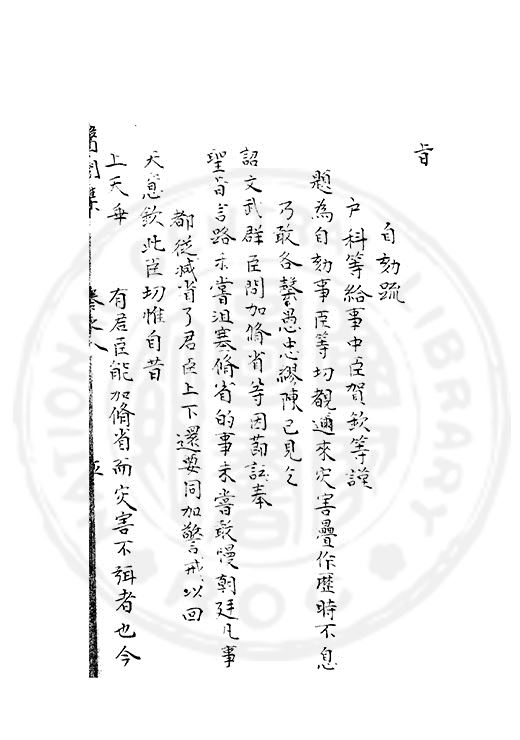 旨
自劾疏
户科等給事中臣賀欽等謹
題為自劾事臣等切觀邇來灾害疊作歷時不息
乃敢各罄愚忠繆陳已見乞
詔文武群臣問加脩省等因節該奉
聖旨言路未嘗沮塞脩省的事未嘗敢慢朝廷凡事
都從減省了君臣上下還要同加警戒以回
天意欽此臣切惟自昔
上天垂 有君臣能加脩省而灾害不弭者也今